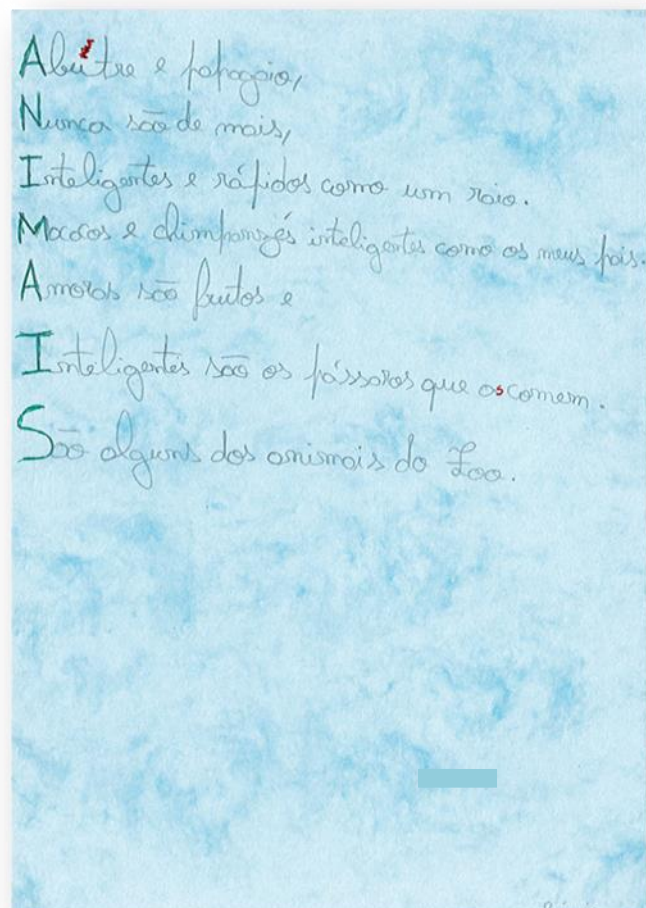 Abutre e papagaio,
Nunca são de mais,
Inteligentes e rápidos como um raio.
Macacos e chimpanzés inteligentes como os meus pais.
Amoras são frutos e
Inteligentes são os pássaros que as comem.
São alguns dos animais do Zoo.